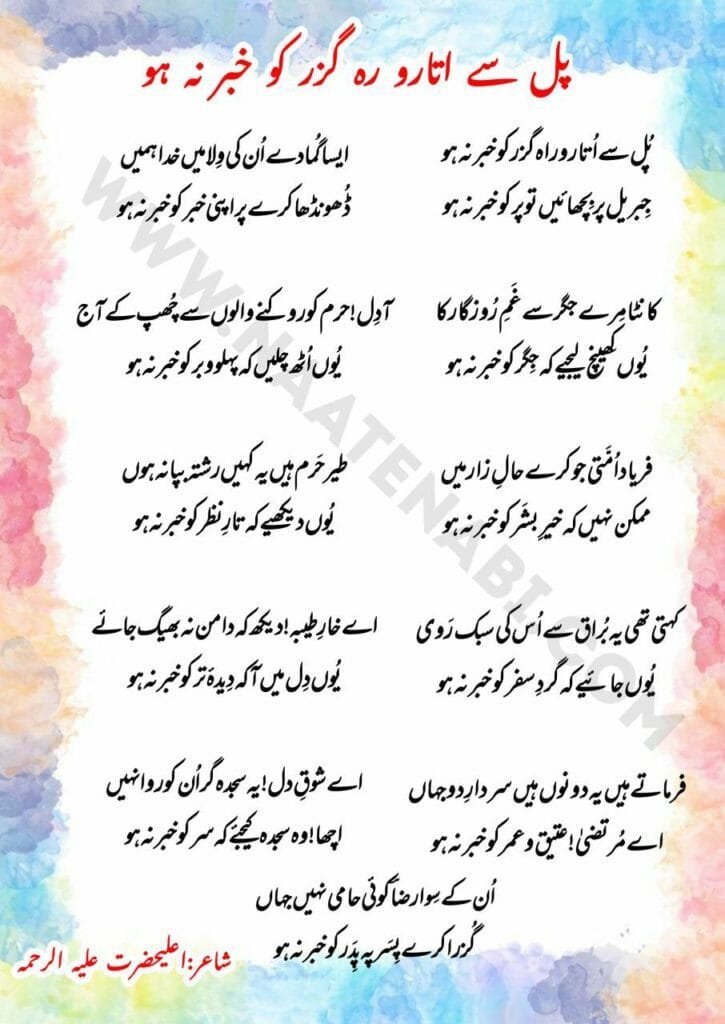 پل سے اتارو رہ گزر کو خبر نہ ہو
پُل سے اُتارو راہ گزر کو خبر نہ ہو
جبریل پر بِچھائیں تو پر کو خبر نہ ہو
کانٹا مِرے جگر سے غَمِ رُوزگار کا
یُوں کھینچ لیجیے کہ جِگر کو خبر نہ ہو
فریاد اُمَّتی جو کرے حالِ زار میں
ممکن نہیں کہ خیرِ بشَر کو خبر نہ ہو
کہتی تھی یہ بُراق سے اُس کی سبک رَوی
یُوں جائیے کہ گردِ سفر کو خبر نہ ہو
فرماتے ہیں یہ دونوں ہیں سردارِ دو جہاں
اے مُرتضیٰ! عتیق و عمر کو خبر نہ ہو
ایسا گُما دے اُن کی وِلا میں خدا ہمیں
ڈُھونڈھا کرے پر اپنی خبر کو خبر نہ ہو
آ دِل! حرم کو روکنے والوں سے چُھپ کے آج
یُوں اُٹھ چلیں کہ پہلو و بر کو خبر نہ ہو
طیرِ حَرم ہیں یہ کہیں رشتہ بپا نہ ہوں
یُوں دیکھیے کہ تارِ نظر کو خبر نہ ہو
اے خارِ طیبہ! دیکھ کہ دامن نہ بھیگ جائے
یُوں دِل میں آ کہ دِیدۂ تر کو خبر نہ ہو
اے شوقِ دل! یہ سجدہ گر اُن کو روا نہیں
اچھا! وہ سجدہ کیجئے کہ سر کو خبر نہ ہو
اُن کے سِوا رضاؔ کوئی حامی نہیں جہاں
گُزرا کرے پِسَر پہ پِدَر کو خبر نہ ہو
شاعر: اعلیحضرت علیہ الرحمہ
WWW.NAATENABI.COM